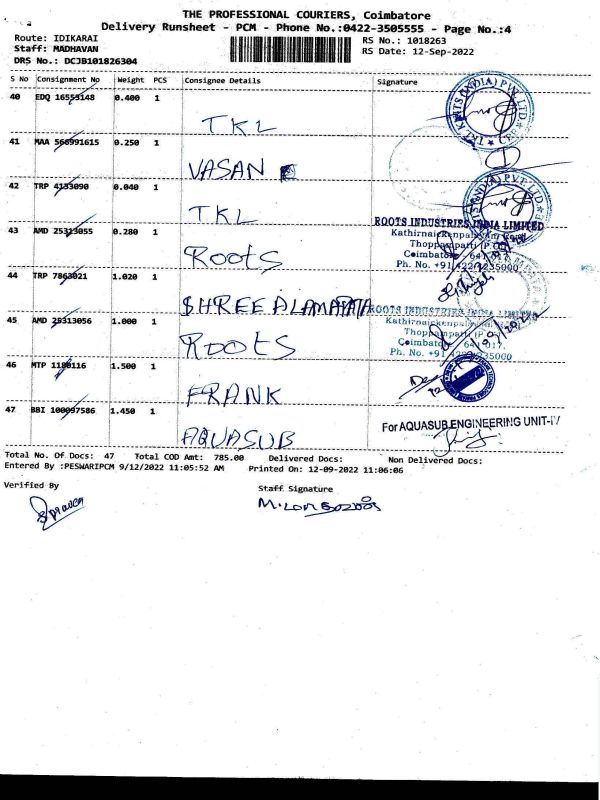 THE PROFESSIONAL COURIERS, Coimbatore
Delivery Runsheet - PCM - Phone No.:0422-3505555 - Page No.:4
Route: IDIKARAI
RS No.: 1018263
Staff: MADHAVAN
RS Date: 12-Sep-2022
DRS No.: DCJB101826304
S No Consignment No Weight PCS Consignee Details Signature
40 EDQ 16553148 0.400 1
TKL
41 MAA 566991615 0.250 1
VASAN
42 TRP 4133090 0.040 1
TKL
43 AMD 25313055 0.280 1
ROOTS INDUSTRIES INDIA LIMITED
Kathirnaickenpalayam
Thoppampatti (P.O)
Coimbatore 641 017.
Ph. No. +91 422 4235000
Roots
44 TRP 7863021 1.020 1
SHREE
ROOTS INDUSTRIES INDIA LIMITED
45 AMD 25313056 1.000 1
Thoppampatti
Coimbatore 641 017.
Ph. No. +91 35000
Roots
46 MTP 1180116 1.500 1
FRANK
47 BBI 100097586 1.450 1
For AQUASUB ENGINEERING UNIT-IV
AQUASUB
Total No. Of Docs: 47 Total COD Amt: 785.00 Delivered Docs: Non Delivered Docs:
Entered By :PESWARIPCM 9/12/2022 11:05:52 AM Printed On: 12-09-2022 11:06:06
Verified By
Staff Signature